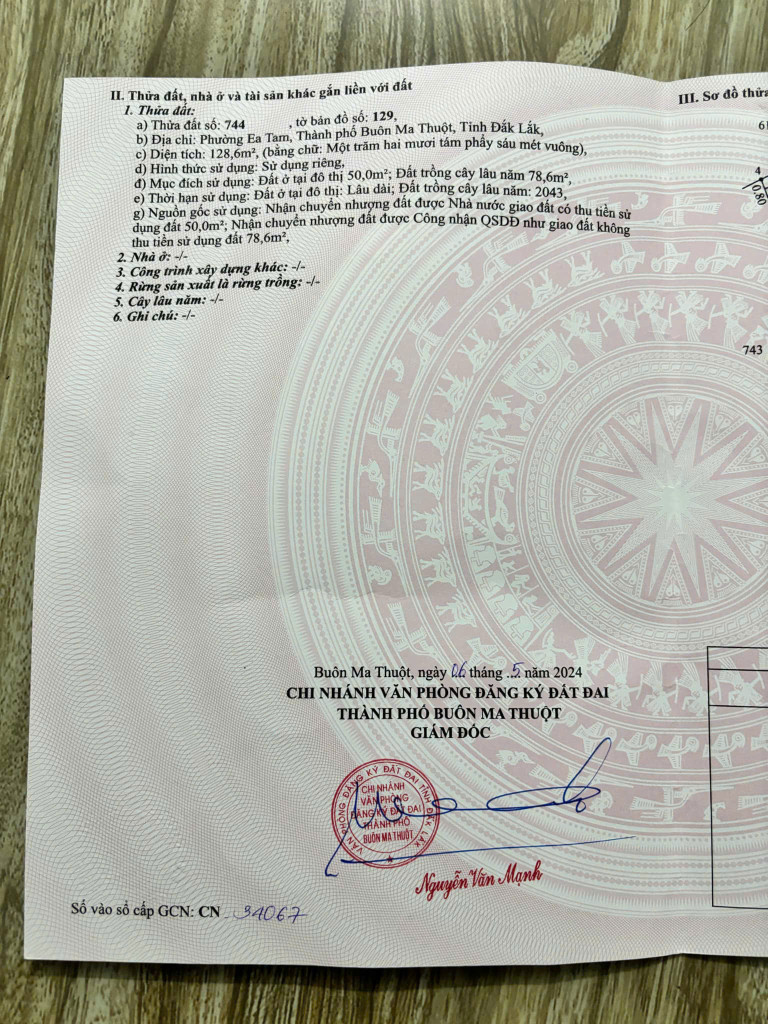 II. Thửa đất, nhà ở và tài sản khác gắn liền với đất
1. Thửa đất:
a) Thửa đất số: 744 , tờ bản đồ số: 129,
b) Địa chỉ: Phường Ea Tam, Thành phố Buôn Ma Thuột, Tỉnh Đắk Lắk,
c) Diện tích: 128,6m², (bằng chữ: Một trăm hai mươi tám phẩy sáu mét vuông),
d) Hình thức sử dụng: Sử dụng riêng,
đ) Mục đích sử dụng: Đất ở tại đô thị 50,0m²; Đất trồng cây lâu năm 78,6m²,
e) Thời hạn sử dụng: Đất ở tại đô thị: Lâu dài; Đất trồng cây lâu năm: 2043,
g) Nguồn gốc sử dụng: Nhận chuyển nhượng đất được Nhà nước giao đất có thu tiền sử
dụng đất 50,0m²; Nhận chuyển nhượng đất được Công nhận QSDĐ như giao đất không
thu tiền sử dụng đất 78,6m²,
2. Nhà ở: -/-
3. Công trình xây dựng khác: -/-
4. Rừng sản xuất là rừng trồng: -/-
5. Cây lâu năm: -/-
6. Ghi chú: -/-
III. Sơ đồ thửa
4
0.80
743
Buôn Ma Thuột, ngày 06 tháng 5 năm 2024
CHI NHÁNH VĂN PHÒNG ĐĂNG KÝ ĐẤT ĐAI
THÀNH PHỐ BUÔN MA THUỘT
GIÁM ĐỐC
VĂN PHÒNG ĐĂNG KÝ ĐẤT ĐAI TỈNH ĐẮK LẮK
CHI NHÁNH
VĂN PHÒNG
ĐĂNG KÝ ĐẤT ĐAI
THÀNH PHỐ
BUÔN MA THUỘT
Nguyễn Văn Mạnh
Số vào sổ cấp GCN: CN 34067